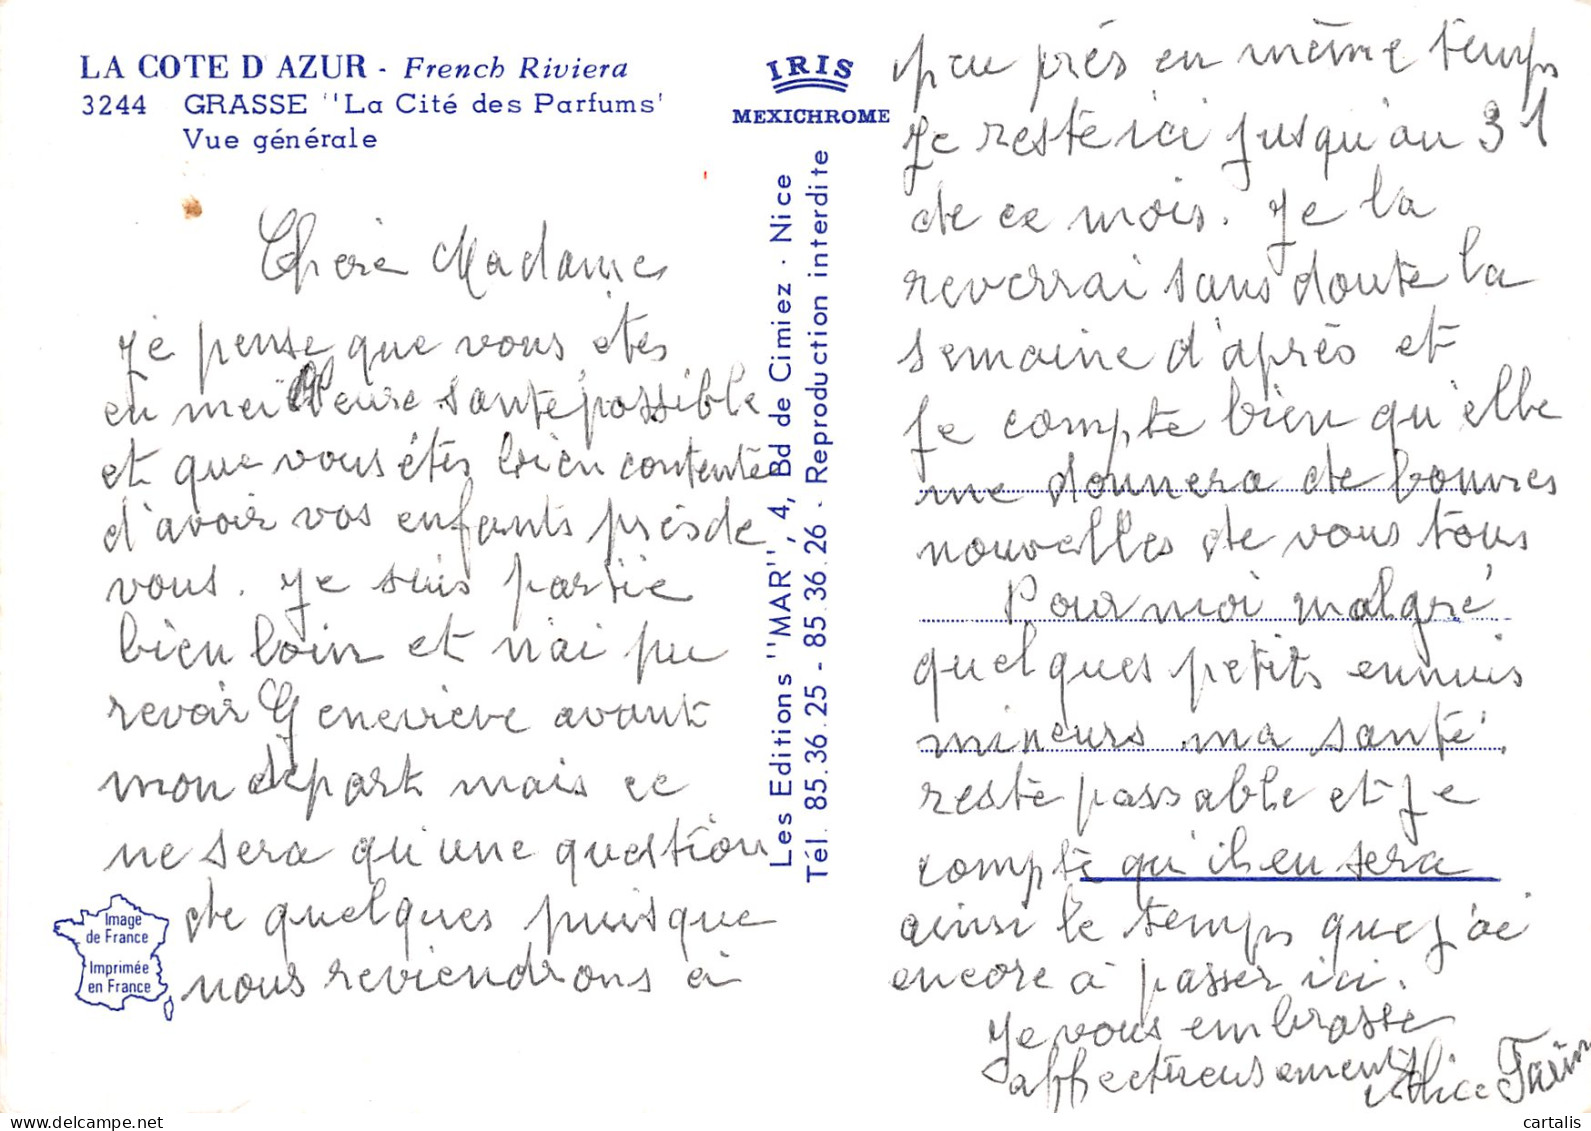 LA COTE D'AZUR - French Riviera
3244 GRASSE "La Cité des Parfums'
Vue générale
IRIS
MEXICHROME
Les Editions "MAR", 4, Bd de Cimiez - Nice
Tél. 85.36.25 - 85.36.26 - Reproduction interdite
Image
de France
Imprimée
en France
Chère Madame
Je pense que vous êtes
en meilleure santé possible
et que vous êtes bien contente
d'avoir vos enfants près de
vous. Je suis partie
bien loin et n'ai pu
revoir Geneviève avant
mon départ mais ce
ne sera qu'une question
de quelques puisque
nous reviendrons à
peu près en même temps
Je reste ici jusqu'au 31
de ce mois. Je la
reverrai sans doute la
semaine d'après et
je compte bien qu'elle
me donnera de bonnes
nouvelles de vous tous
Pour moi malgré
quelques petits ennuis
mineurs ma santé
reste passable et je
compte qu'il en sera
ainsi le temps que j'ai
encore à passer ici.
Je vous embrasse
affectueusement
Alice
cartalis.com